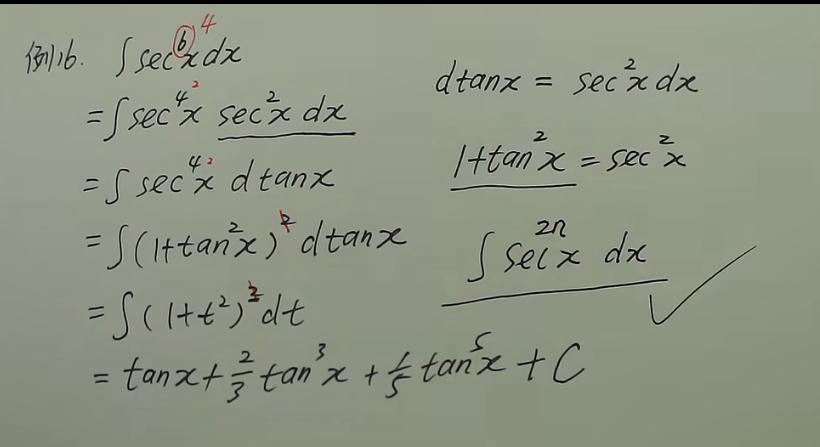 例16. ∫ sec⁶x dx 4
= ∫ sec⁴x sec²x dx 2
= ∫ sec⁴x d tanx 2
= ∫ (1+tan²x)² d tanx
= ∫ (1+t²)² dt
= tanx + 2/3 tan³x + 1/5 tan⁵x + C
d tanx = sec²x dx
1+tan²x = sec²x
∫ sec²ⁿx dx